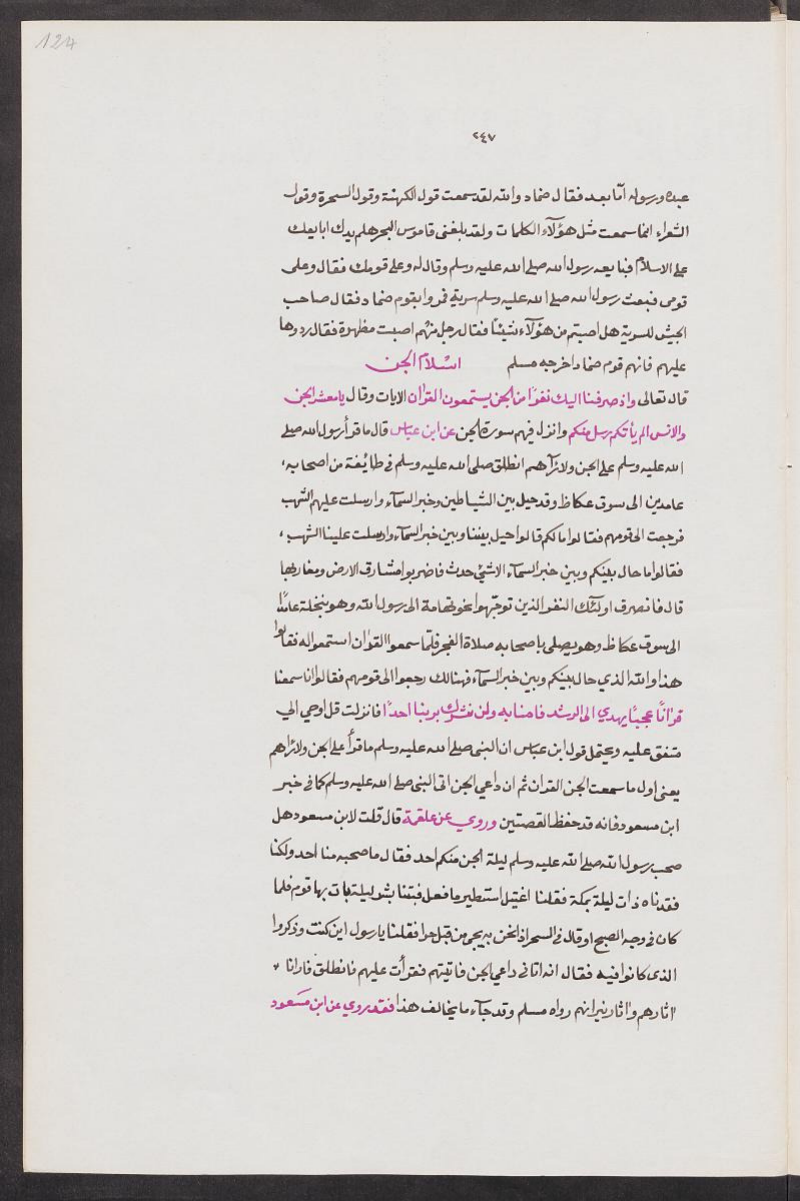 124
٢٤٧
عبده ورسوله امّا بعد فقال ضماد والله لقد سمعت قول الكهنة وقول السحرة وقول
الشعراء انما سمعت مثل هؤلآء الكلمات ولقد بلغنى قاموس البحر هلم يدك ابايعك
على الاسلام فبايعه رسول الله صلى الله عليه وسلم وقال له وعلى قومك فقال وعلى
قومى فبعث رسول الله صلى الله عليه وسلم سرية فمروا بقوم ضماد فقال صاحب
الجيش للسرية هل اصبتم من هؤلآء شيئًا فقال رجل منهم اصبت مطهرة فقال ردوها
عليهم فانهم قوم ضماد اخرجه مسلم اسْلام الجن
قال تعالى واذ صرفنا اليك نفرًا من الجن يستمعون القرٰان الايات وقال يا معشر الجن
والانس الم يأتكم رسل منكم وانزل فيهم سورة الجن عن ابن عباس قال ما قرأ رسول الله صلى
الله عليه وسلم على الجن ولا رآهم انطلق صلى الله عليه وسلم فى طائفة من اصحابه،
عامدين الى سوق عكاظ وقد حيل بين الشياطين وخبر السمآء وارسلت عليهم الشهب
فرجعت الى قومهم فقالوا مالكم قالوا حيل بيننا وبين خبر السمآء وارسلت علينا الشهب،
فقالوا ما حال بينكم وبين خبر السمآء الا شئ حدث فاضربوا مشارق الارض ومغاربها
قال فانصرف اولئك النفر الذين توجّهوا نحو تهامة الى رسول الله وهو بنخلة عامدًا
الى سوق عكاظ وهو يصلى باصحابه صلاة الفجر فلمّا سمعوا القرٰان استمعوا له فقالوا
هذا والله الذي حال بينكم وبين خبر السمآء فهنالك رجعوا الى قومهم فقالوا انا سمعنا
قرٰانًا عجبًا يهدي الى الرشد فامنا به ولن نشرك بربنا احدًا فانزلت قل اوحي الي
متفق عليه ويحتمل قول ابن عباس ان النبى صلى الله عليه وسلم ما قرأ على الجن ولا رآهم
يعنى اول ما سمعت الجن القرٰان ثم ان داعي الجن اتى النبى صلى الله عليه وسلم كما فى خبر
ابن مسعود فانه قد حفظ القصتين وروي عن علقمة قال قلت لابن مسعود هل
صحب رسول الله صلى الله عليه وسلم ليلة الجن منكم احد فقال ما صحبه منا احد ولكنا
فقدناه ذات ليلة بمكة فقلنا اغتيل استطير ما فعل فبتنا بشر ليلة بات بها قوم فلما
كان فى وجه الصبح او قال فى السحر اذا نحن به يجئ من قبل حرا فقلنا يا رسول اين كنت وذكروا
الذى كانوا فيه فقال انه اتانى داعي الجن فاتيتهم فقرأت عليهم فانطلق فارانا
اثارهم واثار نيرانهم رواه مسلم وقد جآء ما يخالف هذا فقد روي عن ابن مسعود